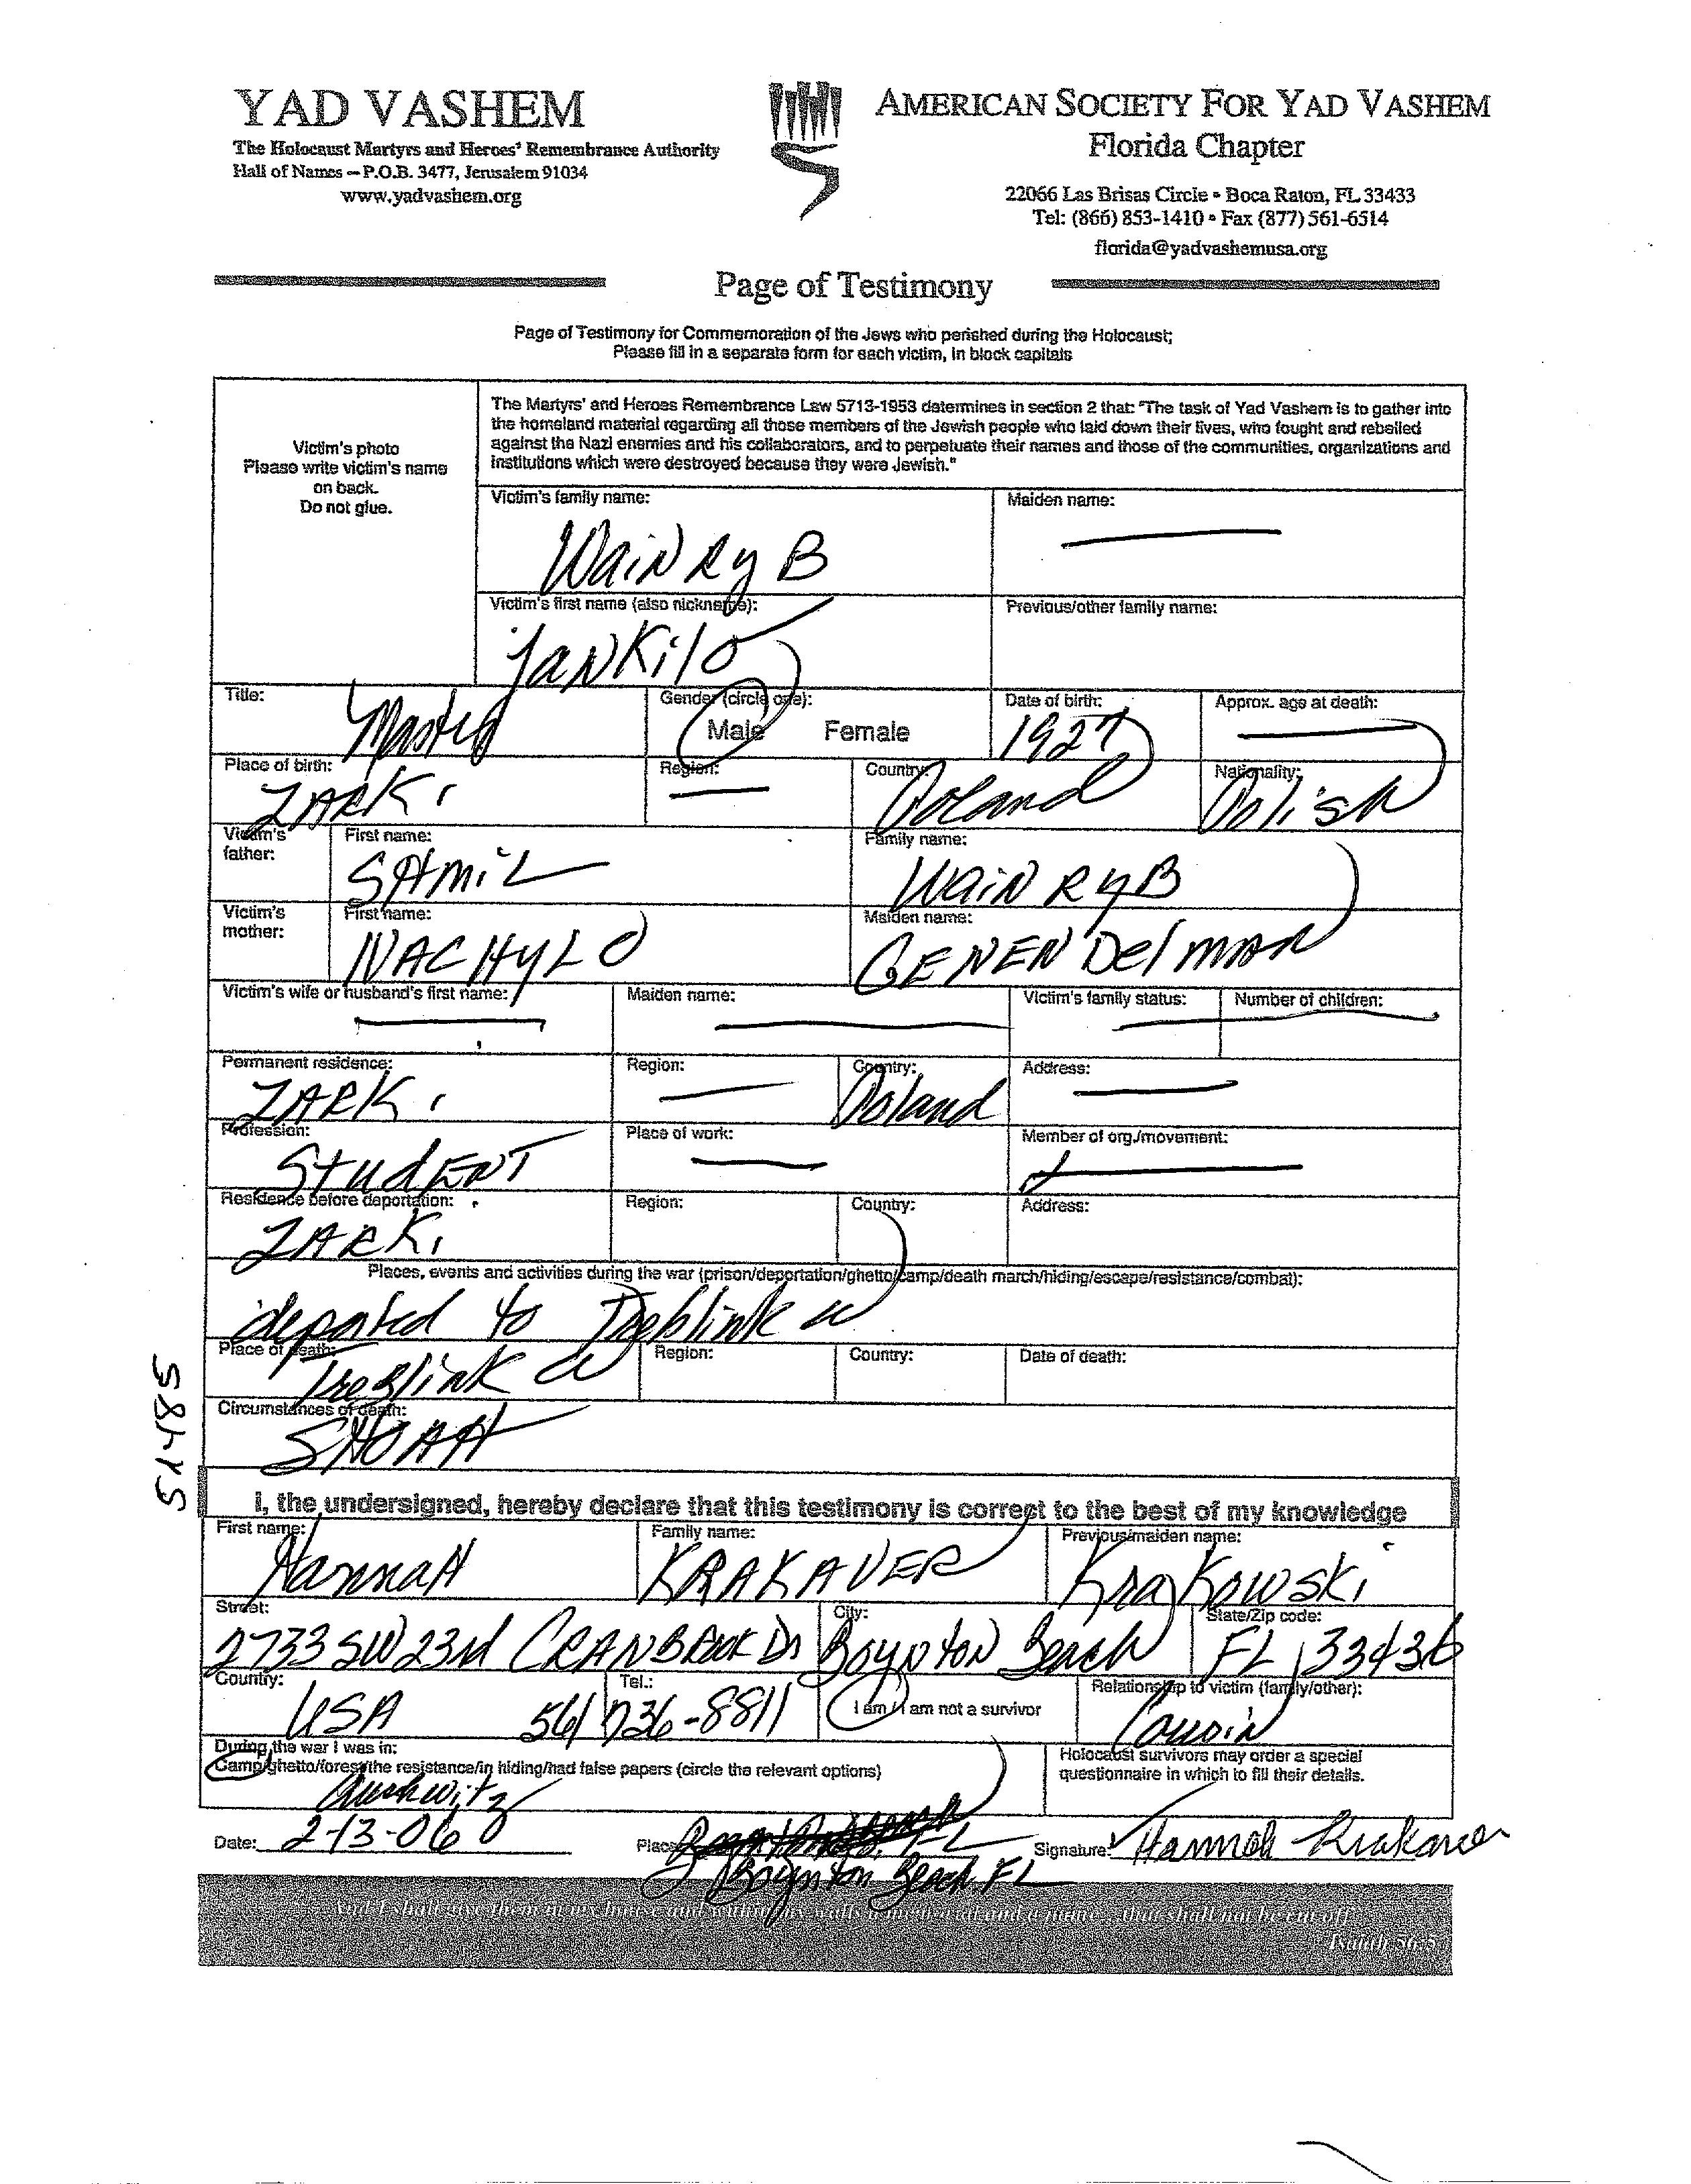 YAD VASHEM
The Holocaust Martyrs and Heroes' Remembrance Authority
Hall of Names – P.O.B. 3477, Jerusalem 91034
www.yadvashem.org
AMERICAN SOCIETY FOR YAD VASHEM
Florida Chapter
22066 Las Brisas Circle • Boca Raton, FL 33433
Tel: (866) 853-1410 • Fax (877) 561-6514
florida@yadvashemusa.org
Page of Testimony
Page of Testimony for Commemoration of the Jews who perished during the Holocaust;
Please fill in a separate form for each victim, in block capitals
Victim's photo
Please write victim's name
on back.
Do not glue.
The Martyrs' and Heroes Remembrance Law 5713-1953 determines in section 2 that: "The task of Yad Vashem is to gather into
the homeland material regarding all those members of the Jewish people who laid down their lives, who fought and rebelled
against the Nazi enemies and his collaborators, and to perpetuate their names and those of the communities, organizations and
institutions which were destroyed because they were Jewish."
Victim's family name: Maiden name:
WaiNRyB
Victim's first name (also nickname): Previous/other family name:
JaNKilo
Title: Gender (circle one): Date of birth: Approx. age at death:
Male Female 1927
Place of birth: Region: Country: Nationality:
ZARKi Poland Polish
Victim's father: First name: Family name:
SAMiL WaiN RyB
Victim's mother: First name: Maiden name:
NACHyLO GENENDelMAN
Victim's wife or husband's first name: Maiden name: Victim's family status: Number of children:
Permanent residence: Region: Country: Address:
ZARKi Poland
Profession: Place of work: Member of org./movement:
StudENT
Residence before deportation: Region: Country: Address:
ZARKi
Places, events and activities during the war (prison/deportation/ghetto/camp/death march/hiding/escape/resistance/combat):
deported to Treblinka
Place of death: Region: Country: Date of death:
Treblinka
Circumstances of death:
SHOAH
I, the undersigned, hereby declare that this testimony is correct to the best of my knowledge
First name: Family name: Previous/maiden name:
HannaH KRAKAUER KraKowski
Street: City: State/Zip code:
2733 SW 23rd CRANBROOK Dr BoyNtoN Beach FL 33436
Country: Tel.: I am/I am not a survivor Relationship to victim (family/other):
USA 561 736-8811 Cousin
During the war I was in:
Camp/ghetto/forest/the resistance/in hiding/had false papers (circle the relevant options)
Holocaust survivors may order a special
questionnaire in which to fill their details.
Auschwitz
Date: 2-13-06 Place: Boynton Beach FL Signature: Hannah Krakauer
And I shall give them in my house and within my walls a memorial and a name... that shall not be cut off
Isaiah 56:5
5485